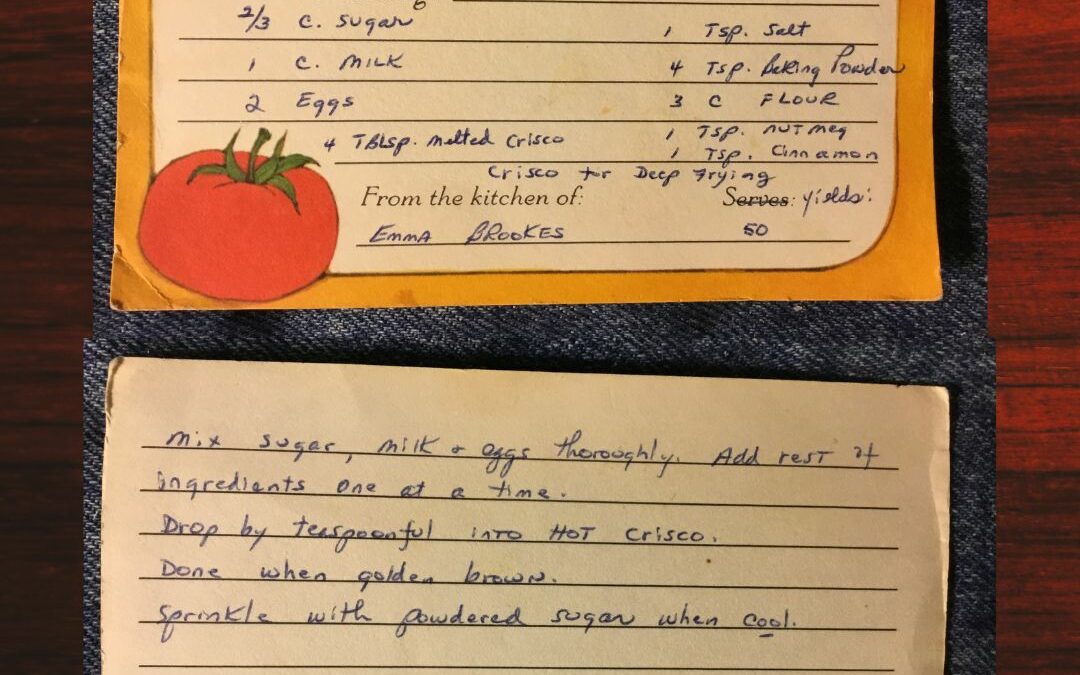 2/3 C. Sugar
1 Tsp. Salt
1 C. MILK
4 Tsp. Baking Powder
2 Eggs
3 C FLOUR
4 TBLsp. Melted Crisco
1 Tsp. nutmeg
1 Tsp. Cinnamon
Crisco for Deep Frying
From the kitchen of: Serves: yields:
EMMA BROOKES 50
Mix sugar, milk + eggs thoroughly. Add rest of
ingredients one at a time.
Drop by teaspoonful into HOT Crisco.
Done when golden brown.
Sprinkle with powdered sugar when cool.